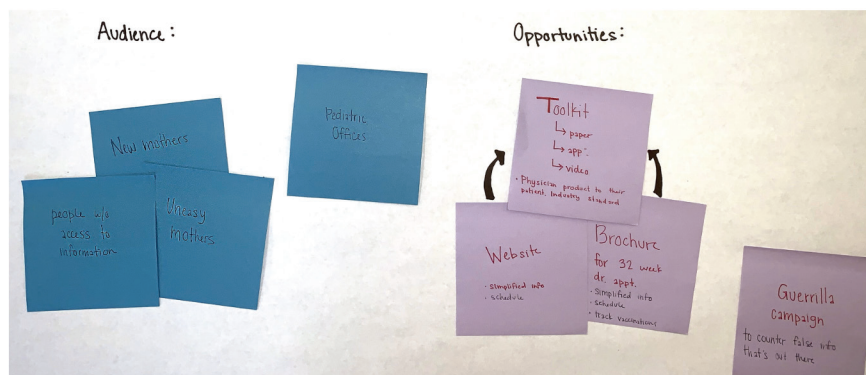 Audience:
New mothers
people w/o
access to
information
Uneasy
mothers
Pediatric
Offices
Opportunities:
Toolkit
↳ paper
↳ app
↳ video
• Physician product to their
patient, Industry standard
Website
• Simplified info
• schedule
Brochure
for 32 week
dr. appt.
• Simplified info
• schedule
• track vaccinations
Guerrilla
campaign
to counter false info
that's out there